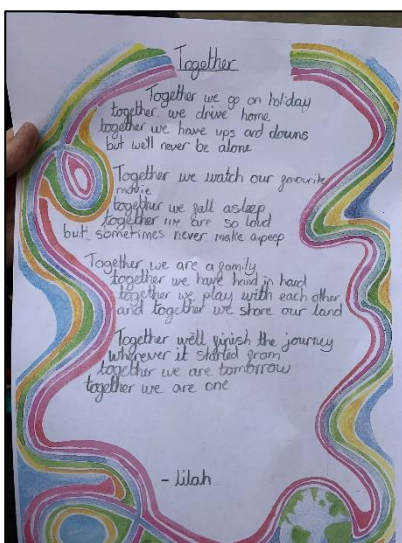 Together
Together we go on holiday
together we drive home
together we have ups and downs
but we'll never be alone
Together we watch our favourite
movie
together we fall asleep
together we are so loud
but sometimes never make a peep
Together we are a family
together we have hand in hand
together we play with each other
and together we share our land
Together we'll finish the journey
wherever it started from
together we are tomorrow
together we are one
- Lilah